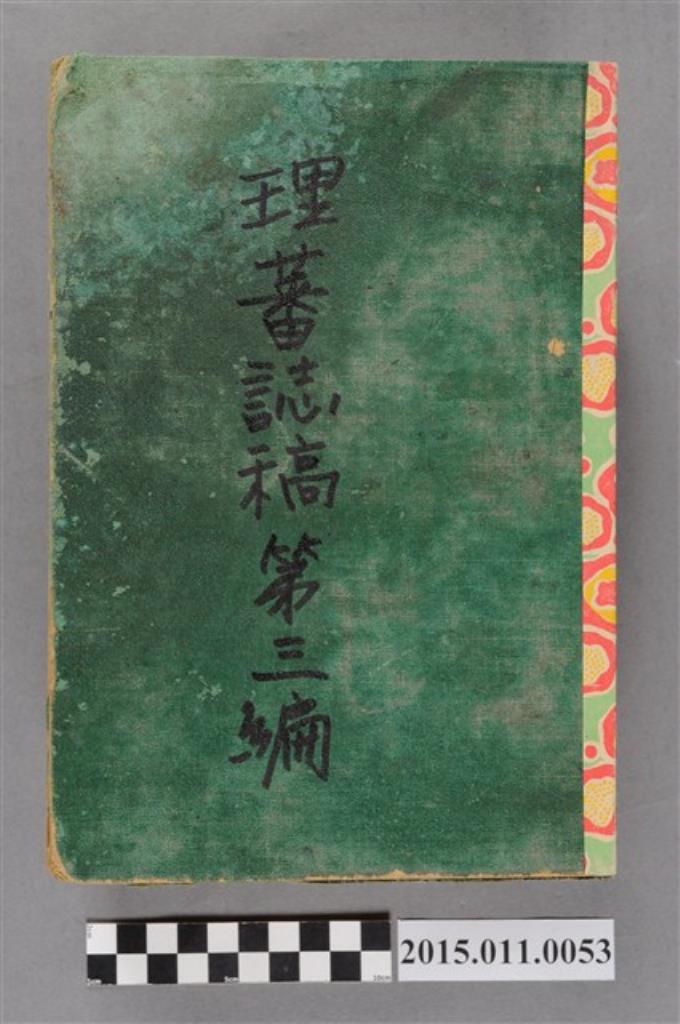 理蕃誌稿第三編
2015.011.0053